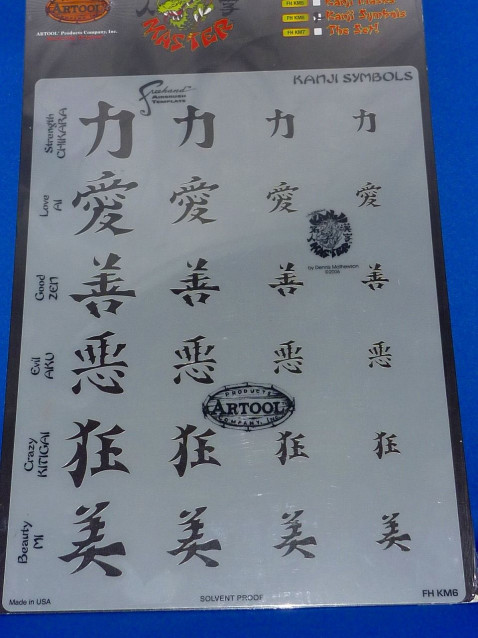 ARTOOL
ARTOOL Products Company, Inc.
MASTER
FH KM5
FH KM6 Kanji Symbols
FH KM7 The Set!
KANJI SYMBOLS
Freehand
AIRBRUSH
TEMPLATE
Strength
CHIKARA
力 力 力 力
Love
AI
愛 愛 愛 愛
MASTER
by Dennis Mathewson
©2006
Good
ZEN
善 善 善 善
Evil
AKU
悪 悪 悪 悪
PRODUCTS
ARTOOL
COMPANY, INC.
Crazy
KITIGAI
狂 狂 狂 狂
Beauty
MI
美 美 美 美
Made in USA
SOLVENT PROOF
FH KM6